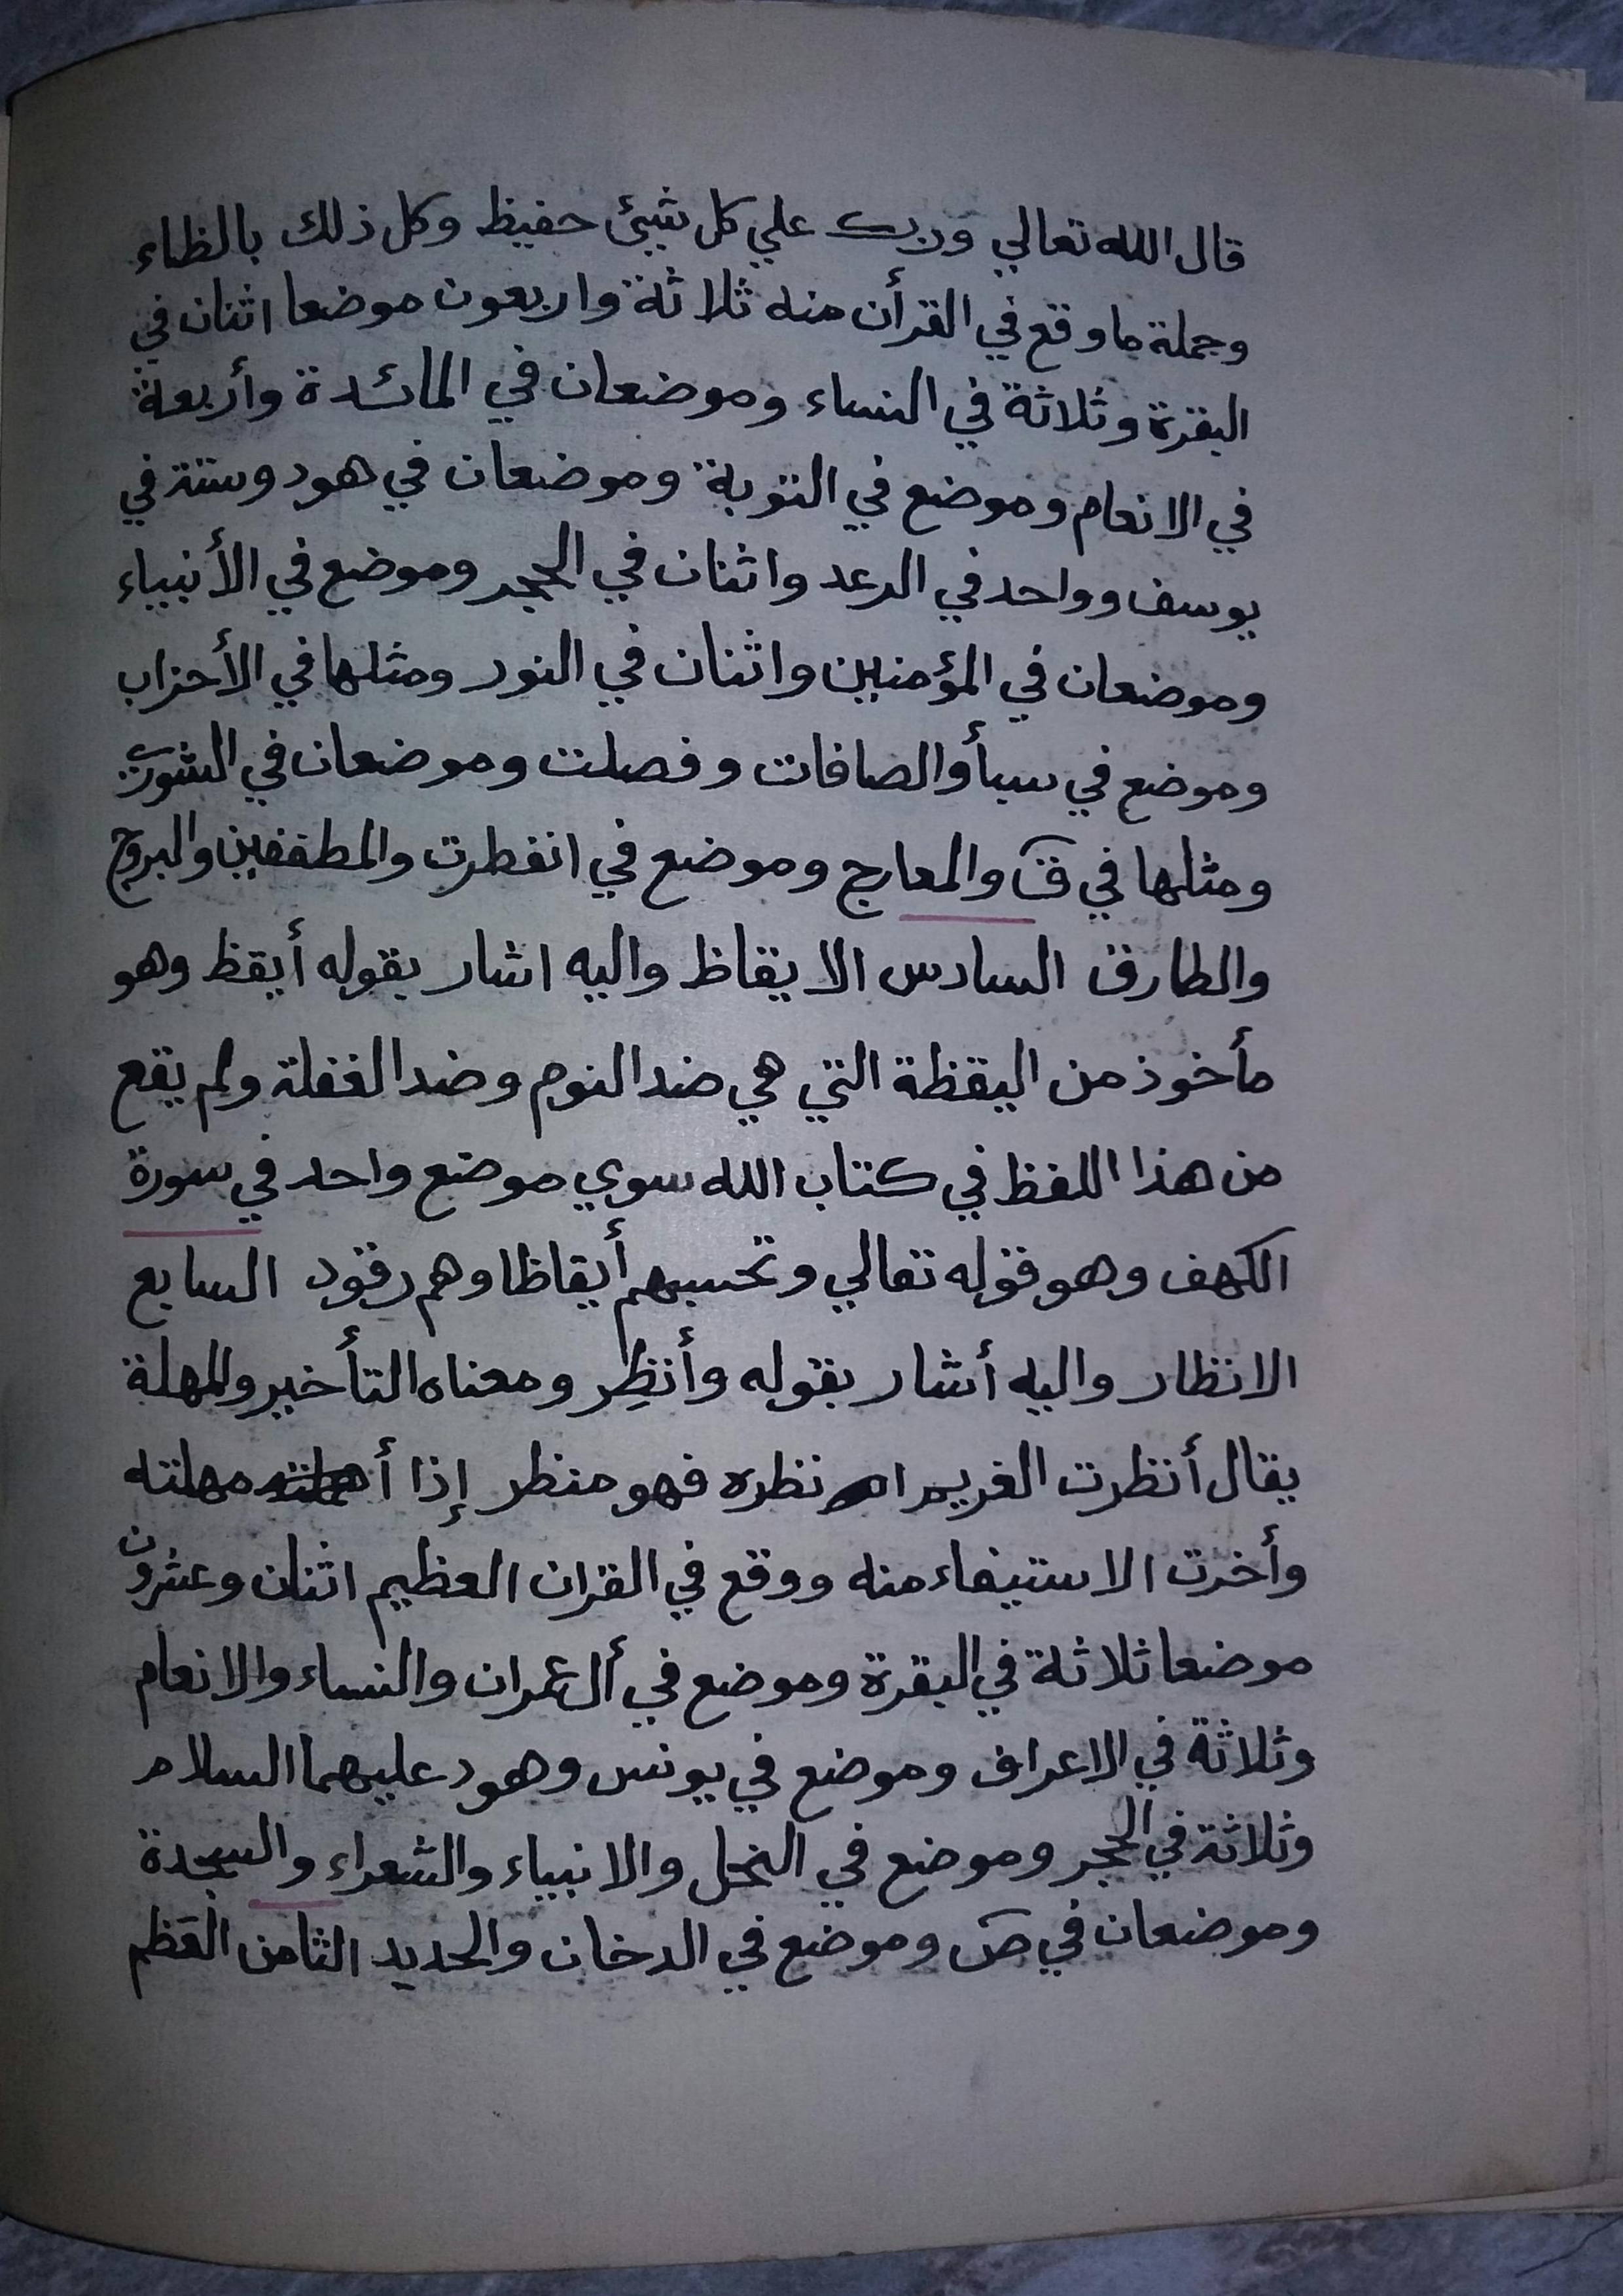 قال الله تعالي وربك علي كل شيئ حفيظ وكل ذلك بالظاء
وجملة ما وقع في القرأن منه ثلاثة واربعون موضعا اثنان في
البقرة وثلاثة في النساء وموضعان في المائدة وأربعة
في الانعام وموضع في التوبة وموضعان في هود وستة في
يوسف وواحد في الرعد واثنان في الحجر وموضع في الأنبياء
وموضعان في المؤمنين واثنان في النور ومثلها في الأحزاب
وموضع في سبأ والصافات وفصلت وموضعان في الشورى
ومثلها في ق والمعارج وموضع في انفطرت والمطففين والبروج
والطارق السادس الايقاظ واليه اشار بقوله أيقظ وهو
مأخوذ من اليقظة التي هي ضد النوم وضد الغفلة ولم يقع
من هذا اللفظ في كتاب الله سوي موضع واحد في سورة
الكهف وهو قوله تعالي وتحسبهم أيقاظا وهم رقود السابع
الانظار واليه أشار بقوله وأنظِر ومعناه التأخير والمهلة
يقال أنظرت الغريم نظره فهو منظر إذا مهلته
وأخرت الاستيفاء منه ووقع في القران العظيم اثنان وعشرون
موضعا ثلاثة في البقرة وموضع في أل عمران والنساء والانعام
وثلاثة في الاعراف وموضع في يونس وهود عليهما السلام
وثلاثة في الحجر وموضع في النحل والانبياء والشعراء والسجدة
وموضعان في ص وموضع في الدخان والحديد الثامن العَظم